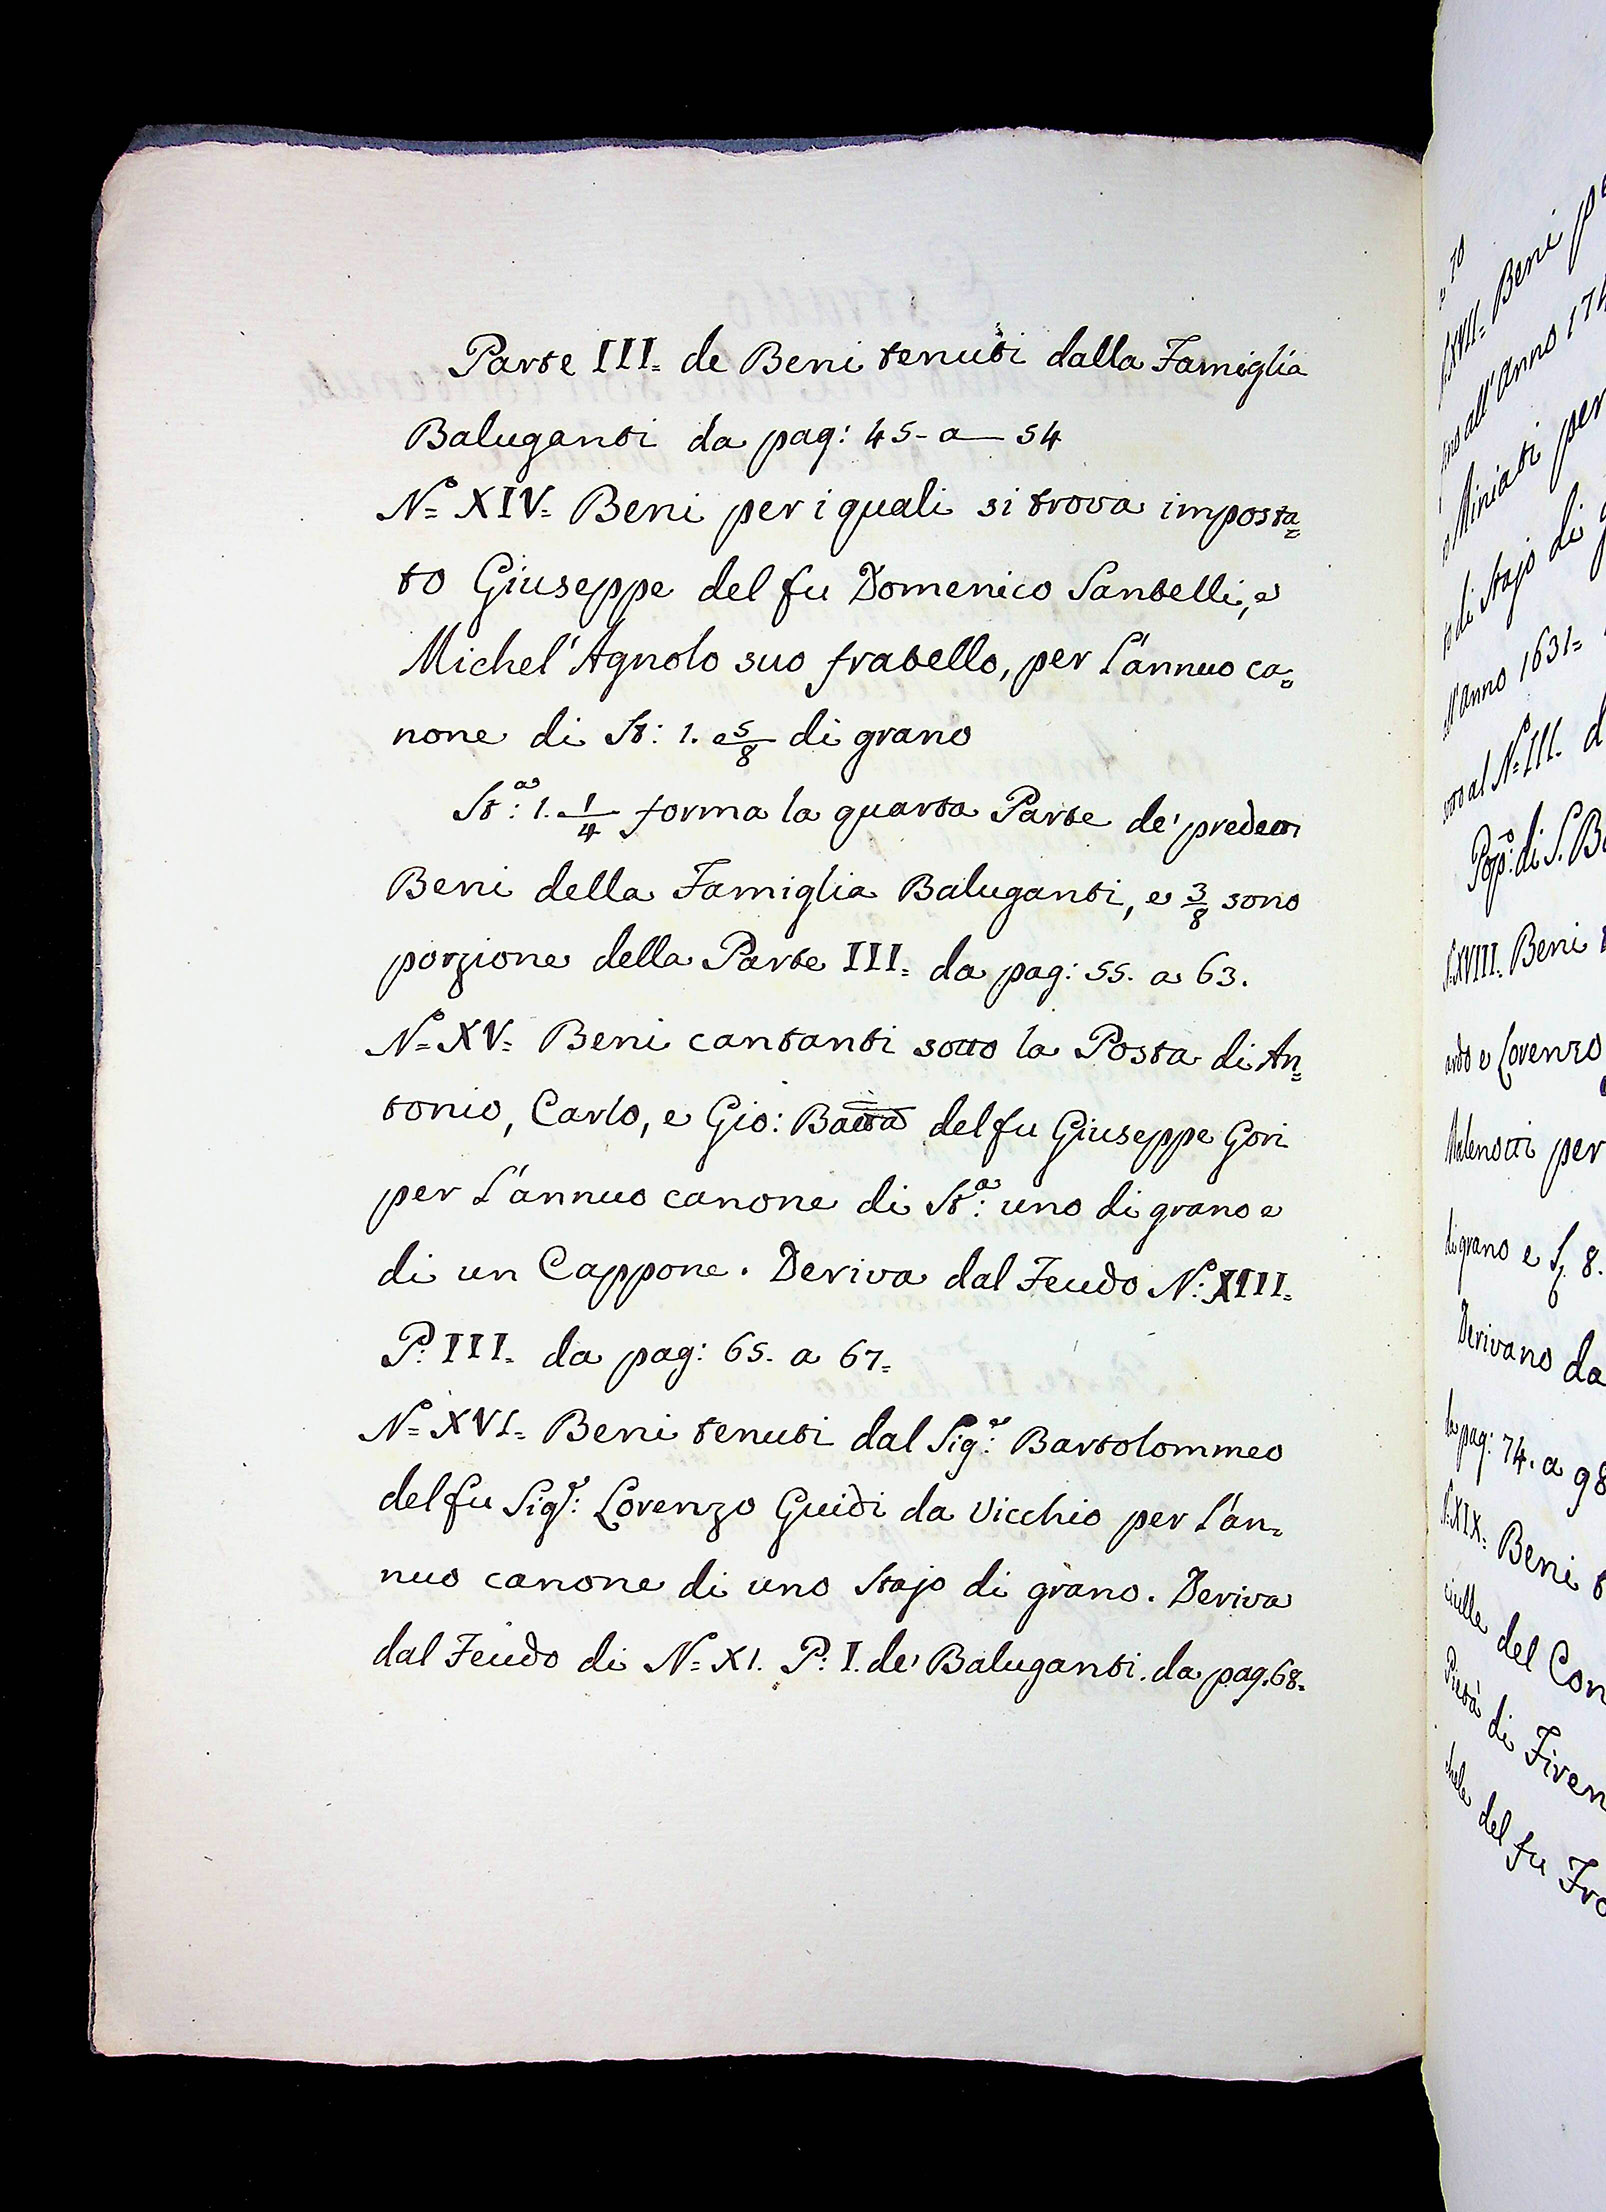 Parte III= de Beni tenuti dalla Famiglia
Baluganti da pag: 45- a — 54
N.º XIV= Beni per i quali si trova imposta=
to Giuseppe del fu Domenico Santelli, e
Michel'Agnolo suo fratello, per l'annuo ca=
none di St: 1. e 5/8 di grano
St.ª: 1. 1/4 forma la quarta Parte de' predetti
Beni della Famiglia Baluganti, e 3/8 sono
porzione della Parte III= da pag: 55. a 63.
N.º XV= Beni cantanti sotto la Posta di An=
tonio, Carlo, e Gio: Batta del fu Giuseppe Gori
per l'annuo canone di St.ª: uno di grano e
di un Cappone. Deriva dal Feudo N: XIII=
P: III= da pag: 65. a 67=
N.º XVI= Beni tenuti dal Sig.r: Bartolommeo
del fu Sig.r: Lorenzo Guidi da Vicchio per l'an=
nuo canone di uno Stajo di grano. Deriva
dal Feudo di N= XI. P: I. de' Baluganti. da pag. 68=
a 70
XVII= Beni
all'Anno
Miniati per
di Stajo di
Anno 1631=
al N= III.
Pop.º: di S.
XVIII= Beni
e Lorenzo
Malenotti per
di grano e
8.
Derivano da
da pag: 74. a 98
XIX= Beni
del
Pietà di
del fu